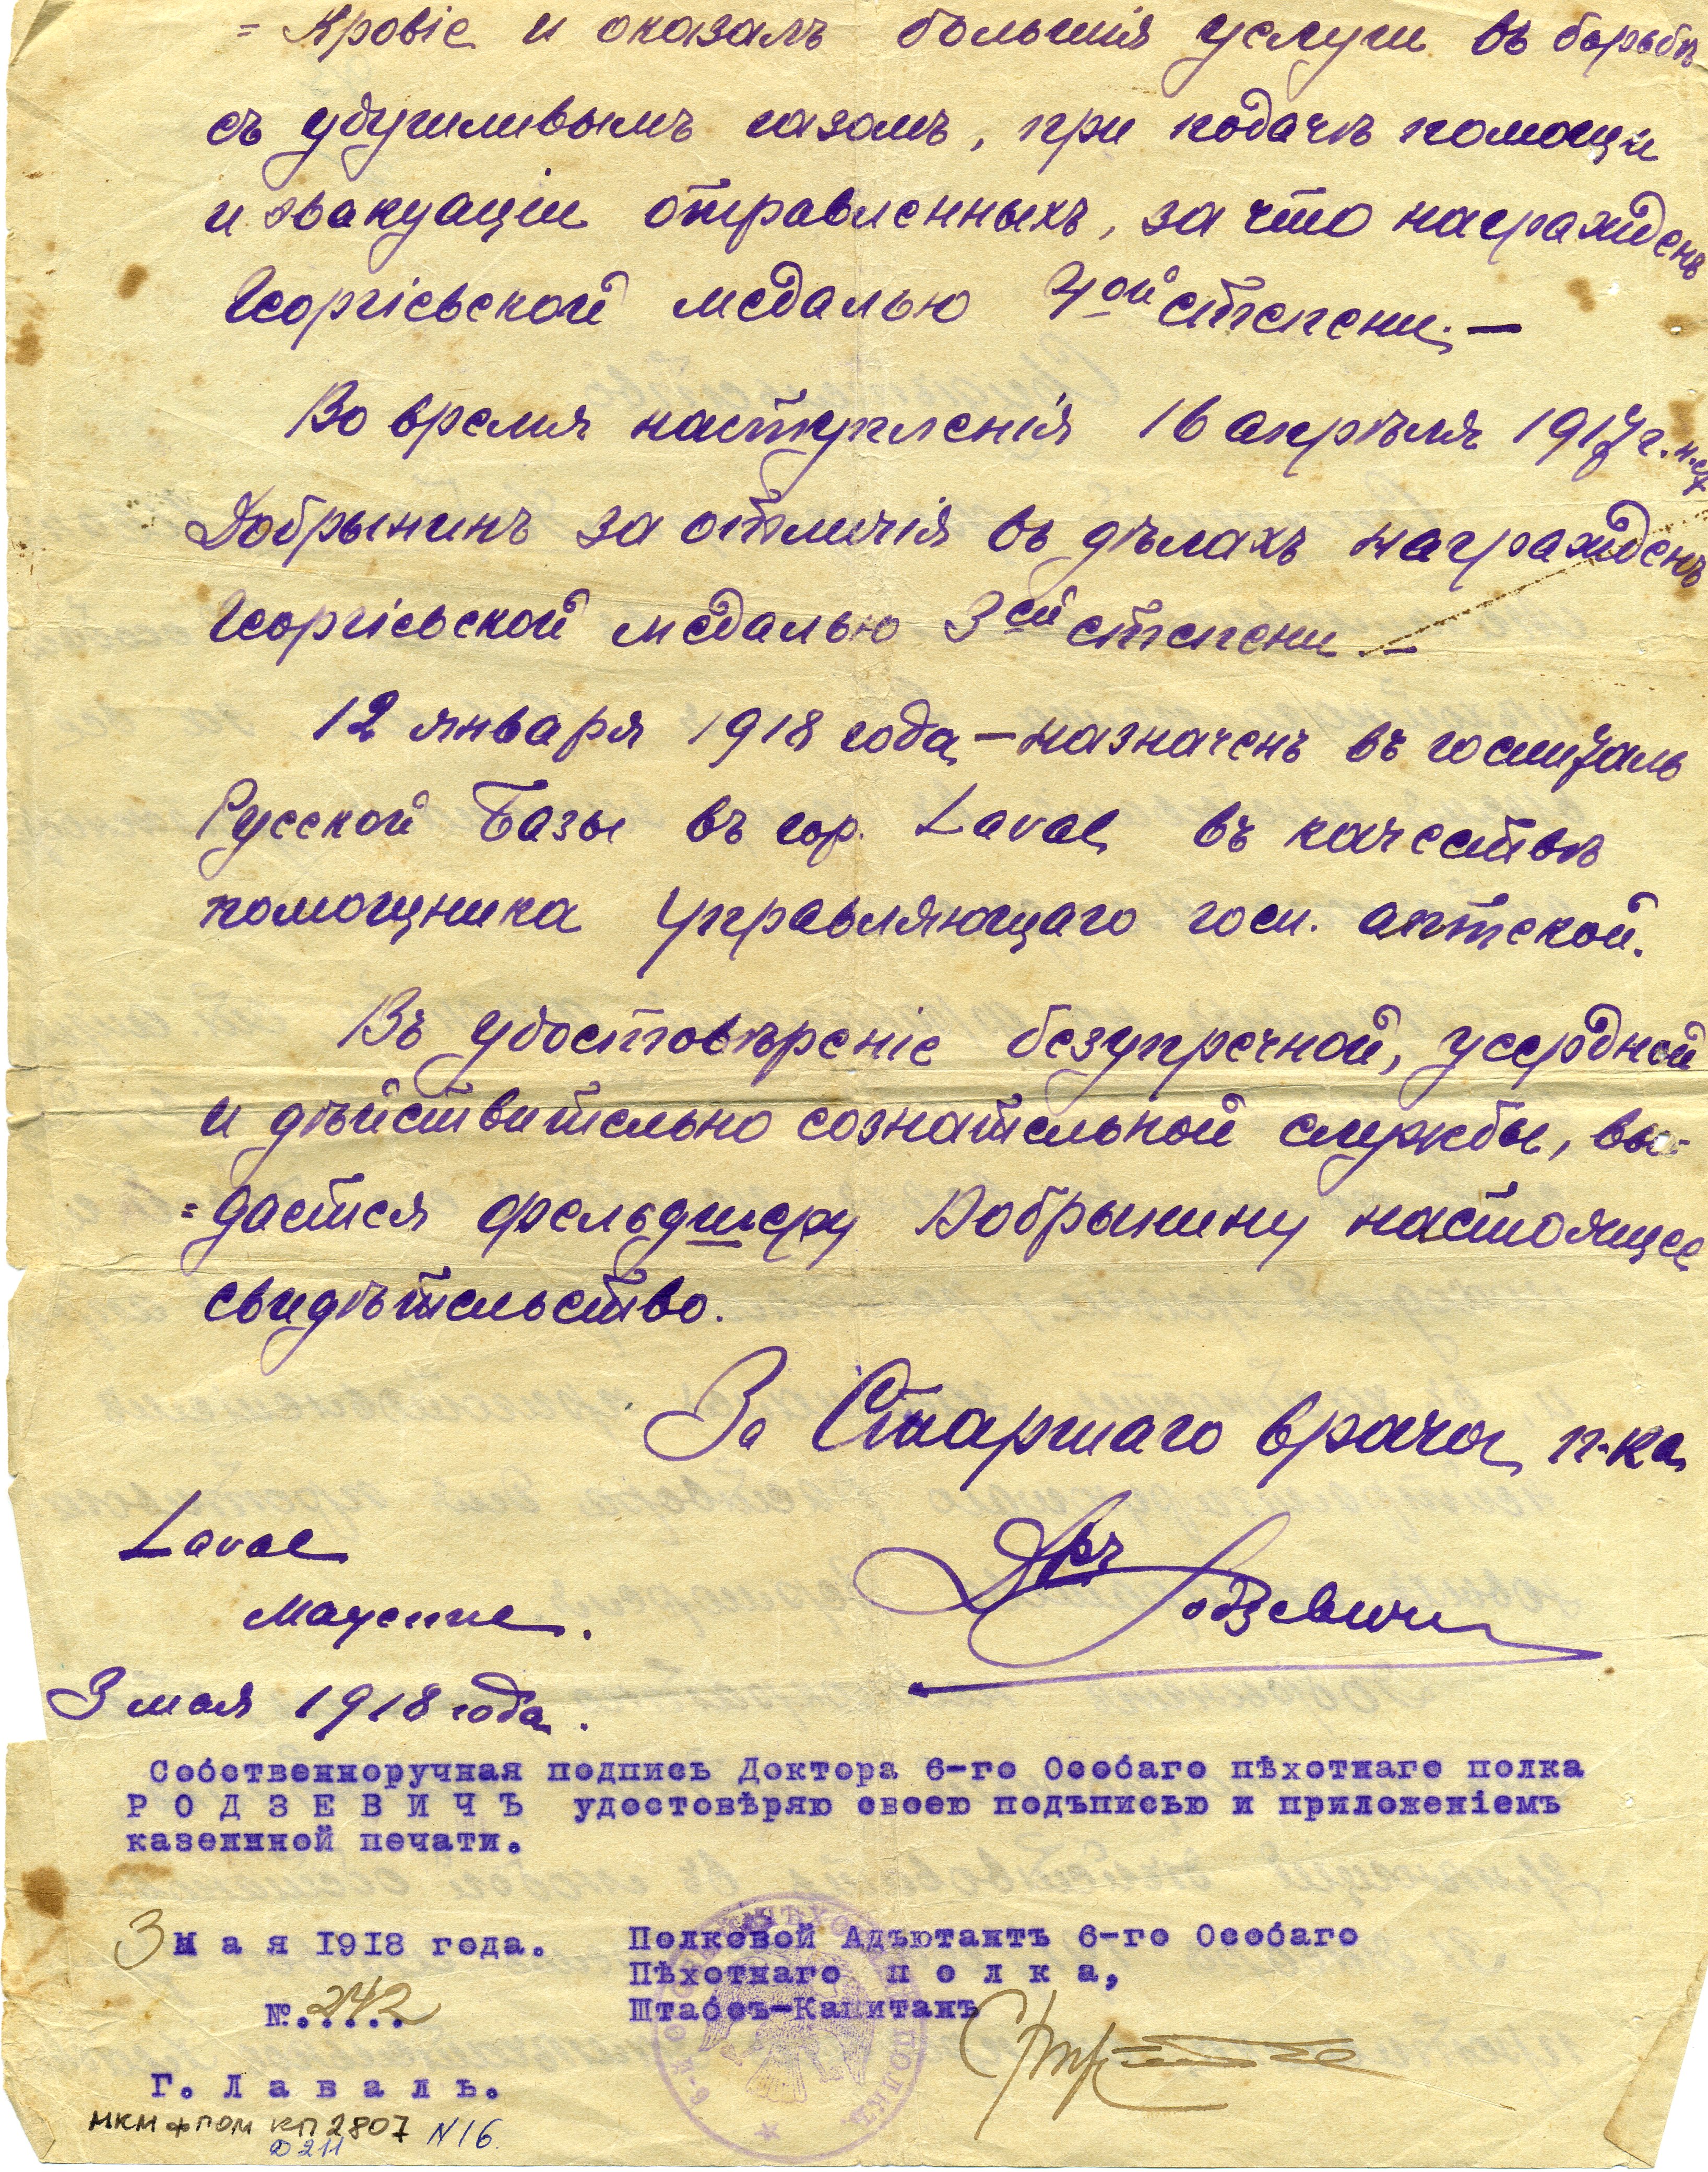 = Кровіе и оказалъ большія услуги въ борьбѣ
съ удушливымъ газомъ, при подачѣ помощи
и эвакуаціи отравленныхъ, за что награжденъ
Георгіевской медалью 4ой степени. —
Во время наступленія 16 апрѣля 1917 г. н.ст
Добрынинъ за отличія въ дѣлахъ награжденъ
Георгіевской медалью 3ей степени. —
12 января 1918 года — назначенъ въ госпиталь
Русской Базы въ гор. Laval въ качествѣ
помощника Управляющаго госп. аптекой.
Въ удостовѣреніе безупречной, усердной
и дѣйствительно сознательной службы, вы-
=дается фельдшеру Добрынину настоящее
свидѣтельство.
За Старшаго врача п-ка
Др. Родзевичъ
Laval
Mayenne.
3 мая 1918 года.
Собственноручная подпись Доктора 6-го Особаго пѣхотнаго полка
Р О Д З Е В И Ч Ъ удостовѣряю своею подъписью и приложеніемъ
казеннной печати.
3 М а я 1918 года.
Полковой Адъютантъ 6-го Особаго
Пѣхотнаго п о л к а,
Штабсъ-Капитанъ
№. 242
Г. Л а в а л ь.
МКМ ФПОМ КП 2807 N16
Д 211